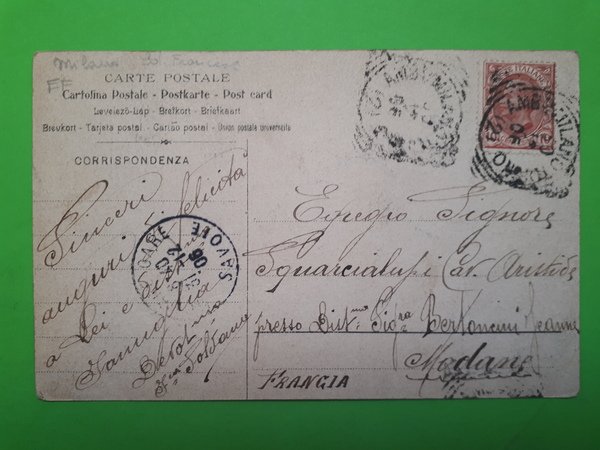 Milano
FF
CARTE POSTALE
Cartolina Postale - Postkarte - Post card
Levelező-Lap - Brefkort - Briefkaart
Brevkort - Tarjeta postal - Cartão postal - Union postale universelle
CORRISPONDENZA
Sinceri
auguri di felicità
a Lei e distinta
Famiglia
Devot.ma
Soldano
GARE
SAVOIE
12
06
AMB. MILANO
POSTE ITALIANE
AMB. MILANO
Egregio Signore
Squarcialupi Cav. Aristide
presso Dist.ma Sig.ra Bertoncini Jeanne
Modane
FRANCIA